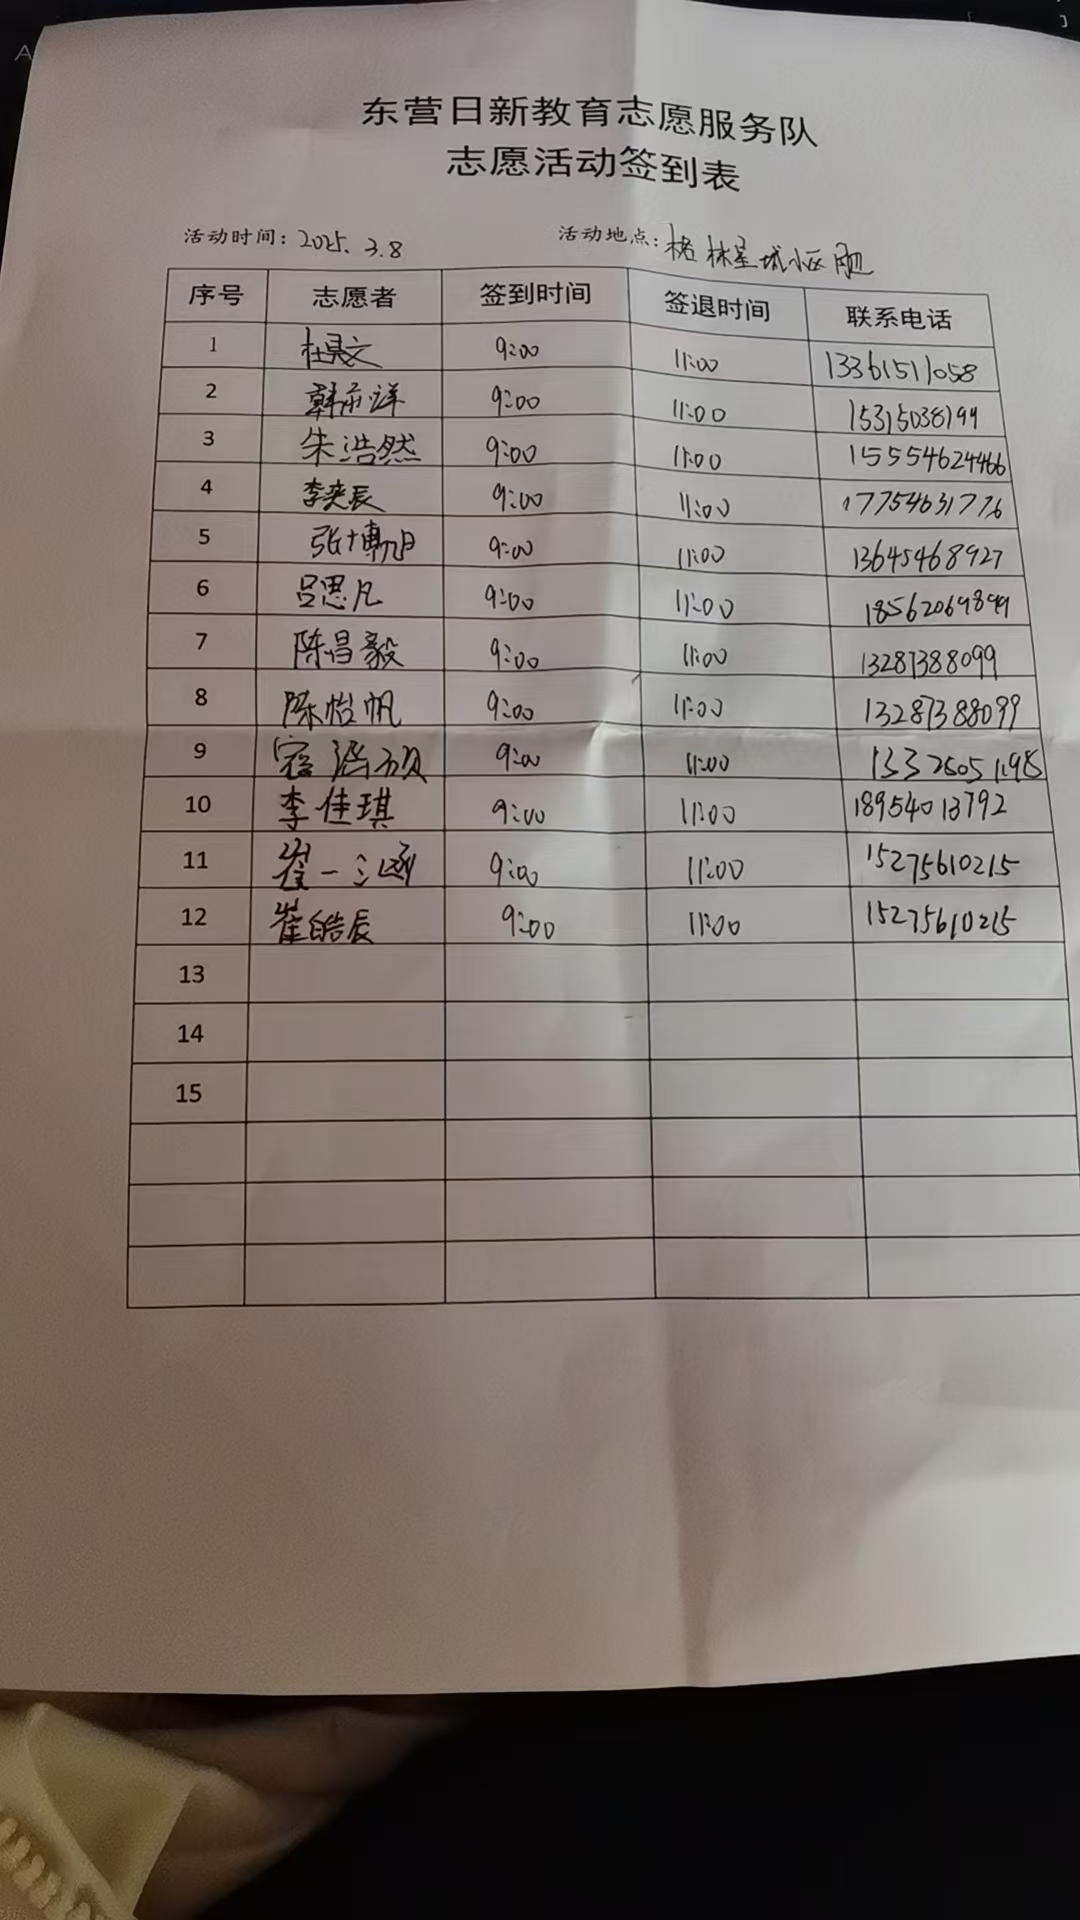 东营日新教育志愿服务队
志愿活动签到表
活动时间：2025.3.8 活动地点：格林星城小区
序号 志愿者 签到时间 签退时间 联系电话
1 杜昊文 9:00 11:00 13361511058
2 韩 洋 9:00 11:00 15315038199
3 朱浩然 9:00 11:00 15554624466
4 李奕辰 9:00 11:00 17754631776
5 张博旭 9:00 11:00 13645468927
6 吕思凡 9:00 11:00
7 陈昌毅 9:00 11:00 13287388099
8 陈怡帆 9:00 11:00 13287388099
9 9:00 11:00
10 李佳琪 9:00 11:00 18954013792
11 崔一涵 9:00 11:00 15275610215
12 崔皓辰 9:00 11:00 15275610215
13
14
15